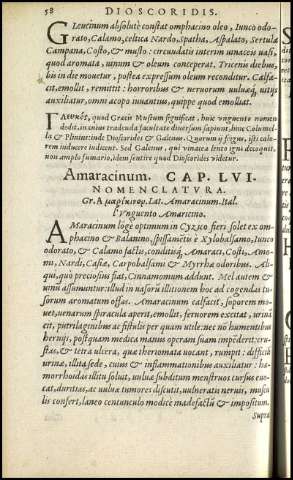 58
DIOSCORIDIS.
GLeucinum absolutè constat omphacino oleo, Iunco odo-
rato, Calamo, celtica Nardo, Spatha, Aspalato, Sertula
Campana, Costo, & musto: circundatis interim uinaceis uasi,
quod aromata, uinum & oleum conceperat. Tricenis diebus,
bis in die mouetur, postea expressum oleum reconditur. Calfa-
cit, emollit, remittit: horroribus & neruorum uuluæq́; uitijs
auxiliatur, omni acopo iuuantius, quippe quod emolliat.
Γλεῦκος, quod Græcis Mustum significat, huic unguento nomen
dedit, in xinio tradenda facultate diuersum sapiunt, huic Colum-
lo & Plinius, inde Dioscorides & Galenus. Quorum ij
rem inducere iudicent. Sed Galenus, qui uinacea lento igni decoquit,
non amplo sumario, idem sentire quod Dioscorides uidetur.
Amaracinum. CAP. LVI.
NOMENCLATVRA.
Gr. Ἀμαράκινον. Lat. Amaracinum. Ital.
l'Vnguento Amaricino.
AMaracinum loge optimum in Cyzico fieri solet ex om-
phacino & Balanino, spissamētis è Xylobalsamo, Iunco
odorato, & Calamo factis, conditūq́; Amaraci, Costi, Amo-
mi, Nardi, Casiæ, Carpobalsami & Myrrhæ odoribus. Ali-
qui, quò preciosius fiat, Cinnamomum addunt. Mel autem &
uinū assumuntur: illud in uasorū illitionem hoc ad cogendas tu-
sorum aromatum offas. Amaracinum calfacit, soporem mo-
uet, uenarum spiracula aperit, emollit, feruorem excitat, urinā
ciet, putrilaginibus ac fistulis per quàm utile: nec nō humentibus
hernijs, postquam medica manus operam suam impēderit: cru-
stas, & tetra ulcera, quæ theriomata uocant, rumpit: difficili
urinæ, illita sede, eiusq́; & inflammationibus auxiliatur: hæ-
morrhoidas illitu soluit, uuluæ subditum menstruos cursus euo-
cat, duritias, ac uuluæ tumores discutit, uulneratis neruis, muscu-
lis confert, laneo centunculo modicè madefactū & impositum.
Supra